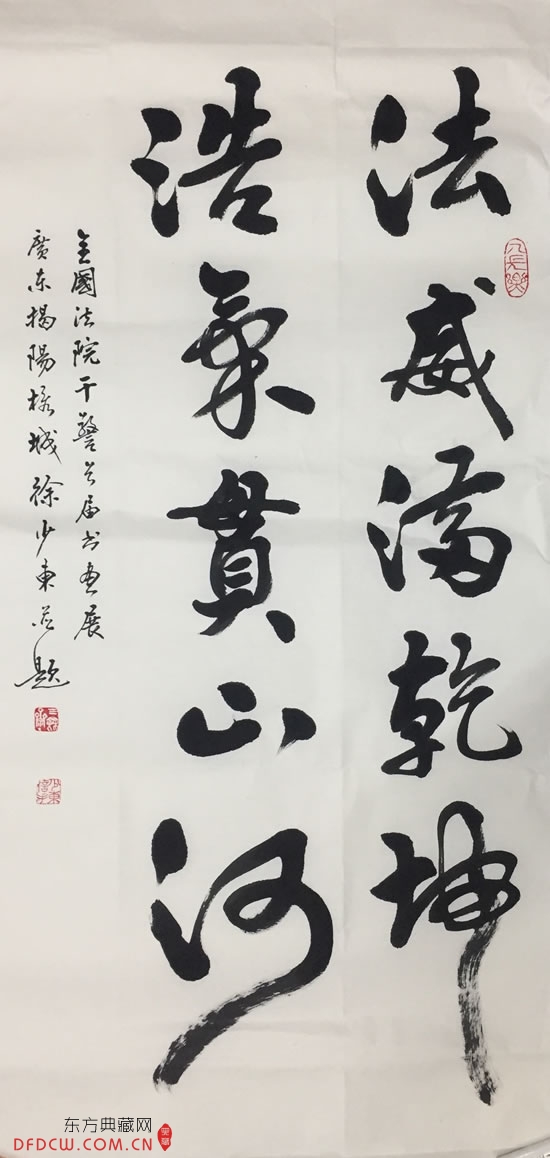 法威满乾坤
浩氣貫山河
全國法院干警首届书画展
廣东揭陽榕城徐少東并题
东方典藏网
DFDCW.COM.CN